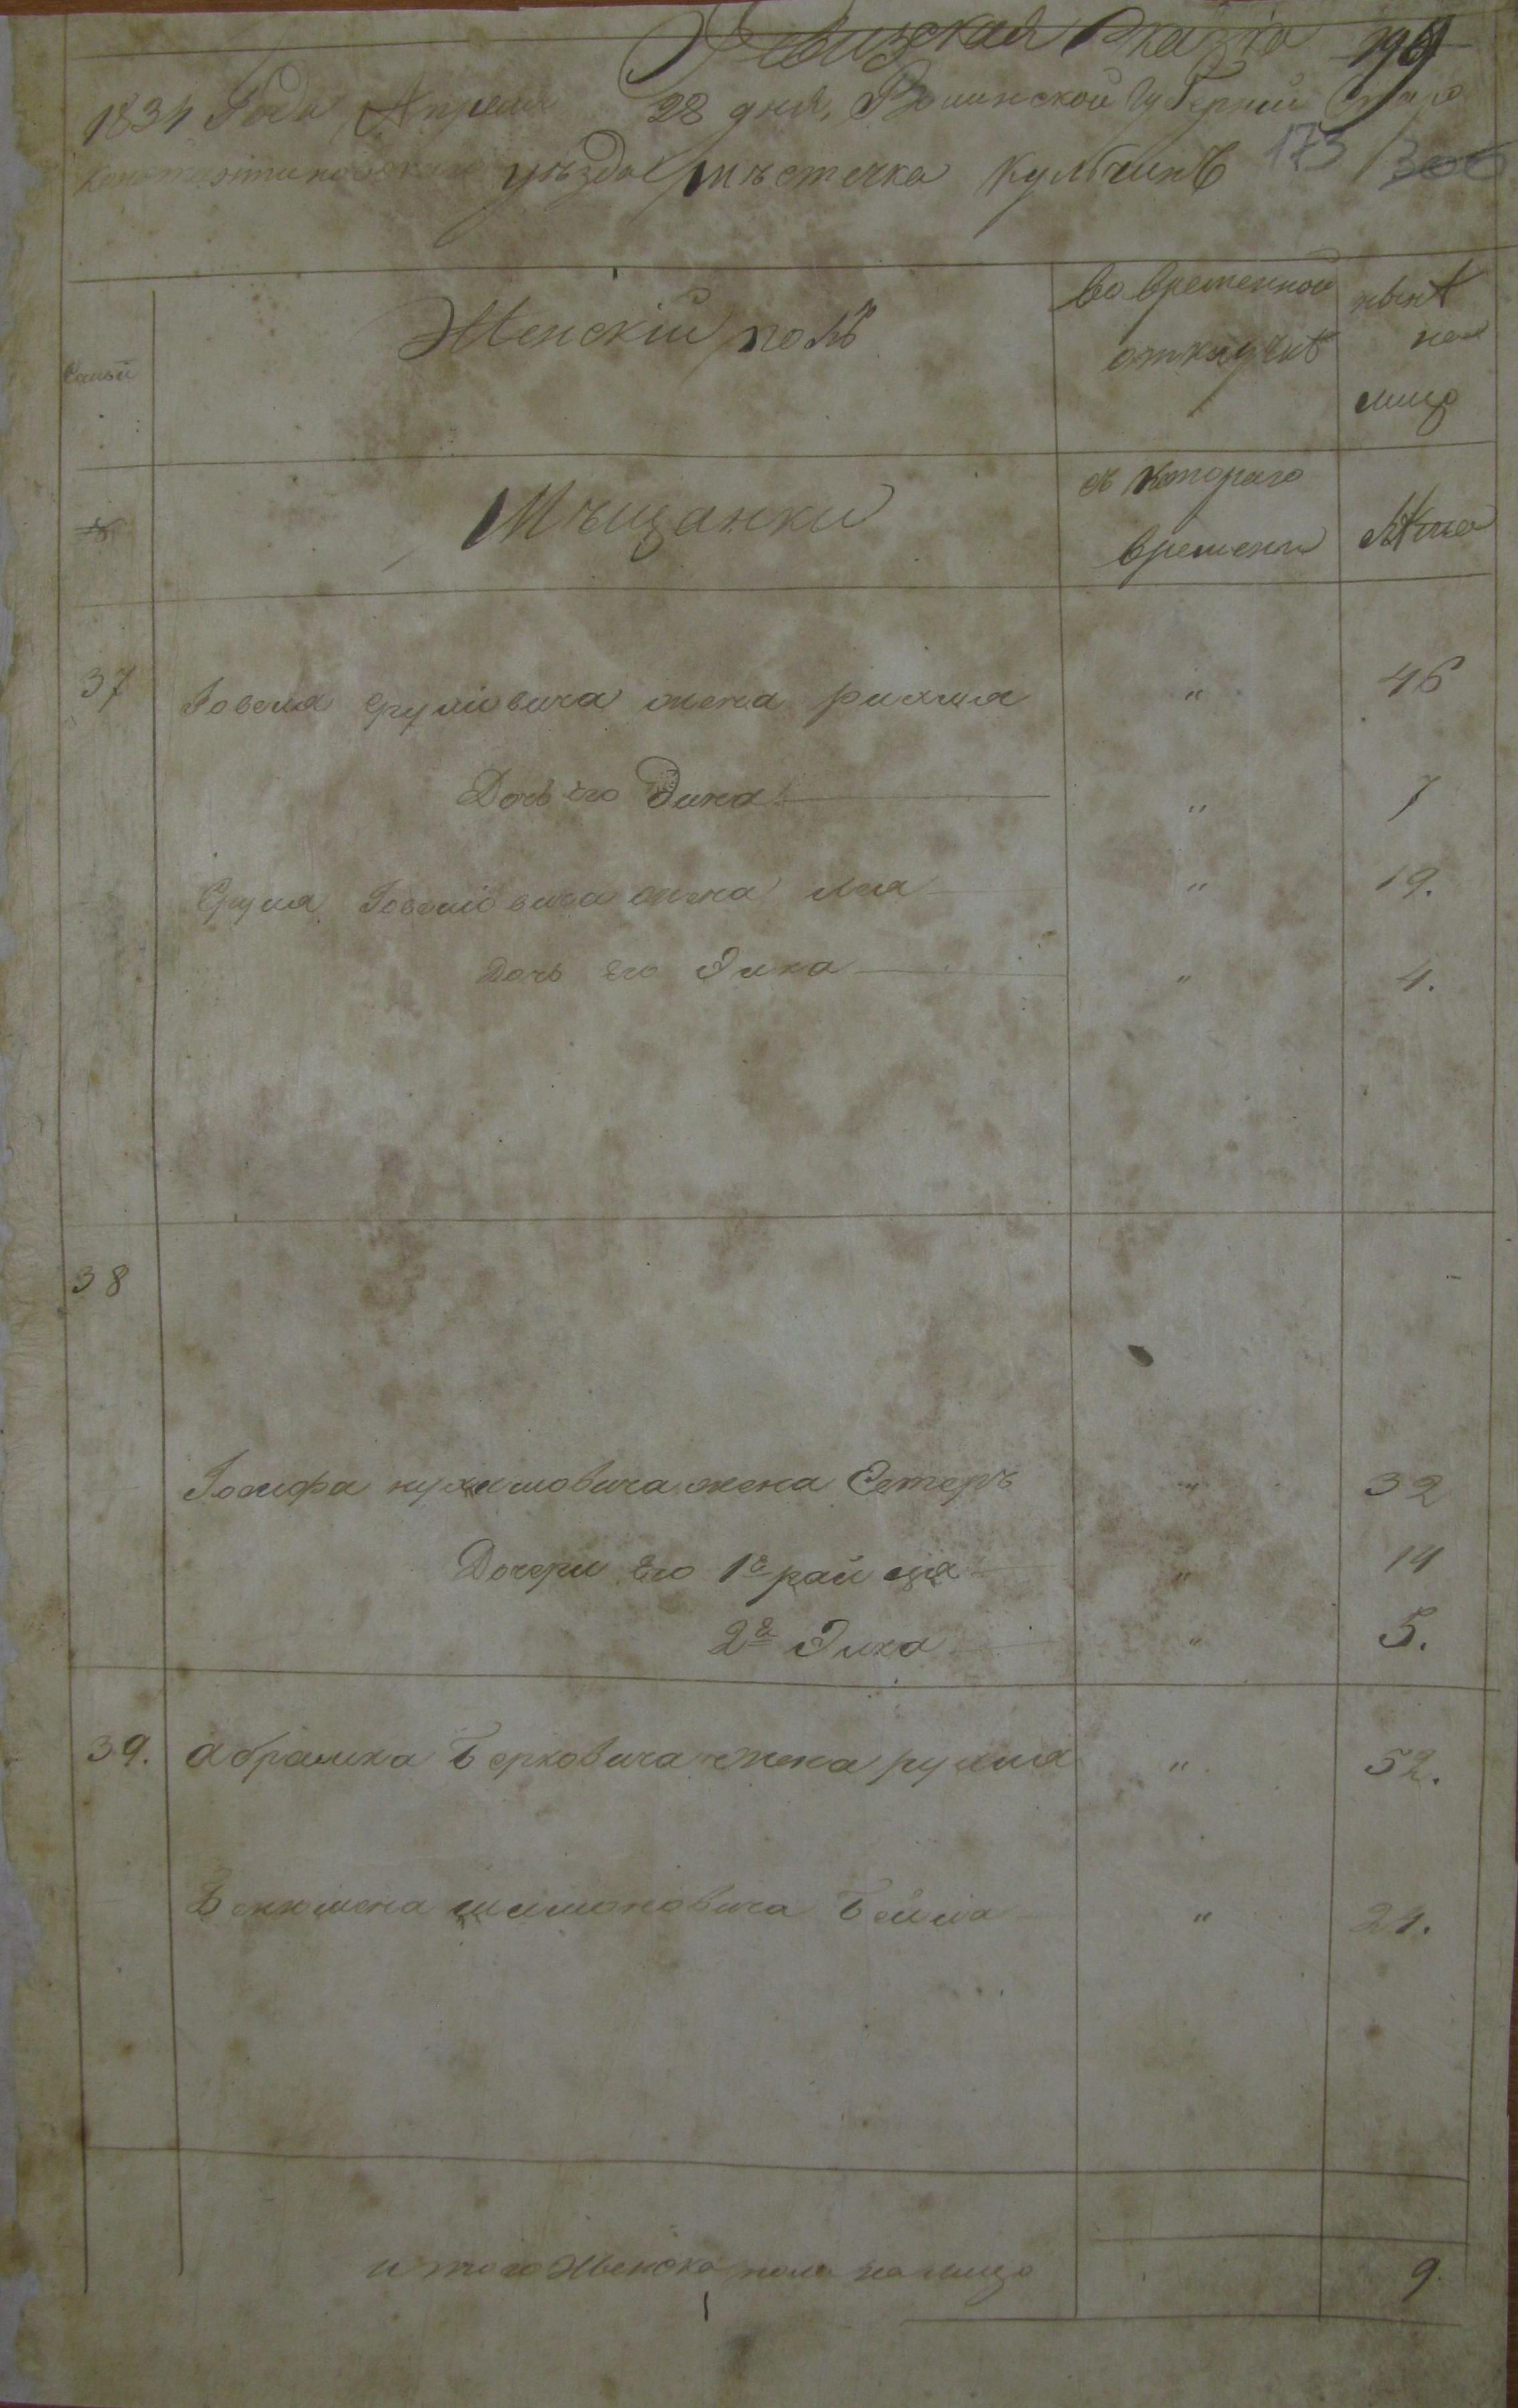 Ревизская Сказка 199
1834 Года Апреля 28 дня, Волинской Губернии Старо
константиновскаго уѣзда мѣстечка Кулчинъ 173 300
Семьи
Женскій полъ
Во временной отлучкѣ
нынѣ на лицо
№
Мѣщанки
съ котораго времени
Лѣта
37 Іовеля Срулiовича жена " 46
Дочь его Дина " 7
Сруля Іовелiовича жена Лея " 19.
Дочь его Эика " 4.
38
Іосифа жена Естеръ " 32
Дочери его 1я " 14
2я " 5.
39. Абрамка Берковича жена рухля " 52.
шимоновича Бейла " 21.
итого Женска пола налицо 9.